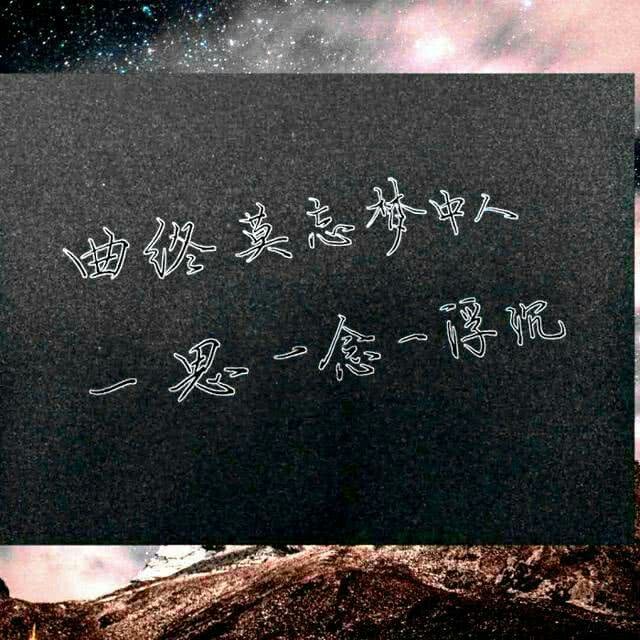 曲终莫忘梦中人
一思一念一浮沉